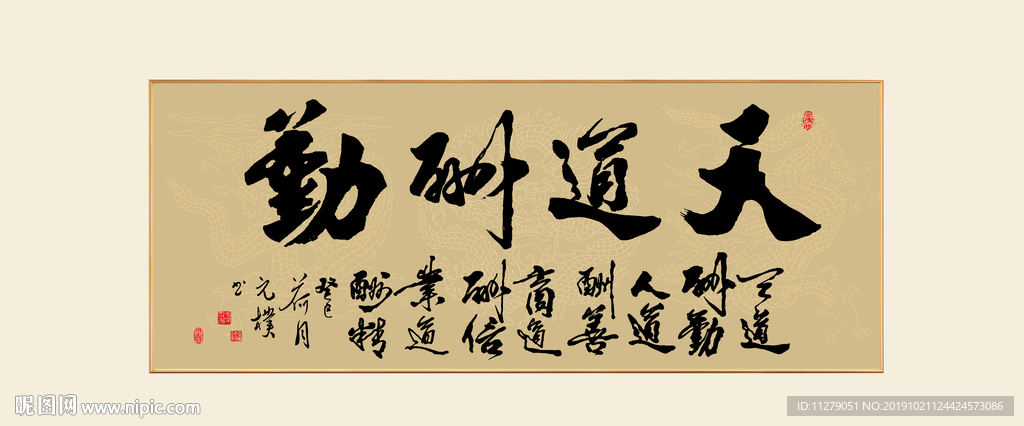 天道酬勤
天道
酬勤
人道
酬善
商道
酬信
業道
酬精
癸巳
荷月
元樸
书
昵图网 www.nipic.com
ID:11279051 NO:20191021124424573086